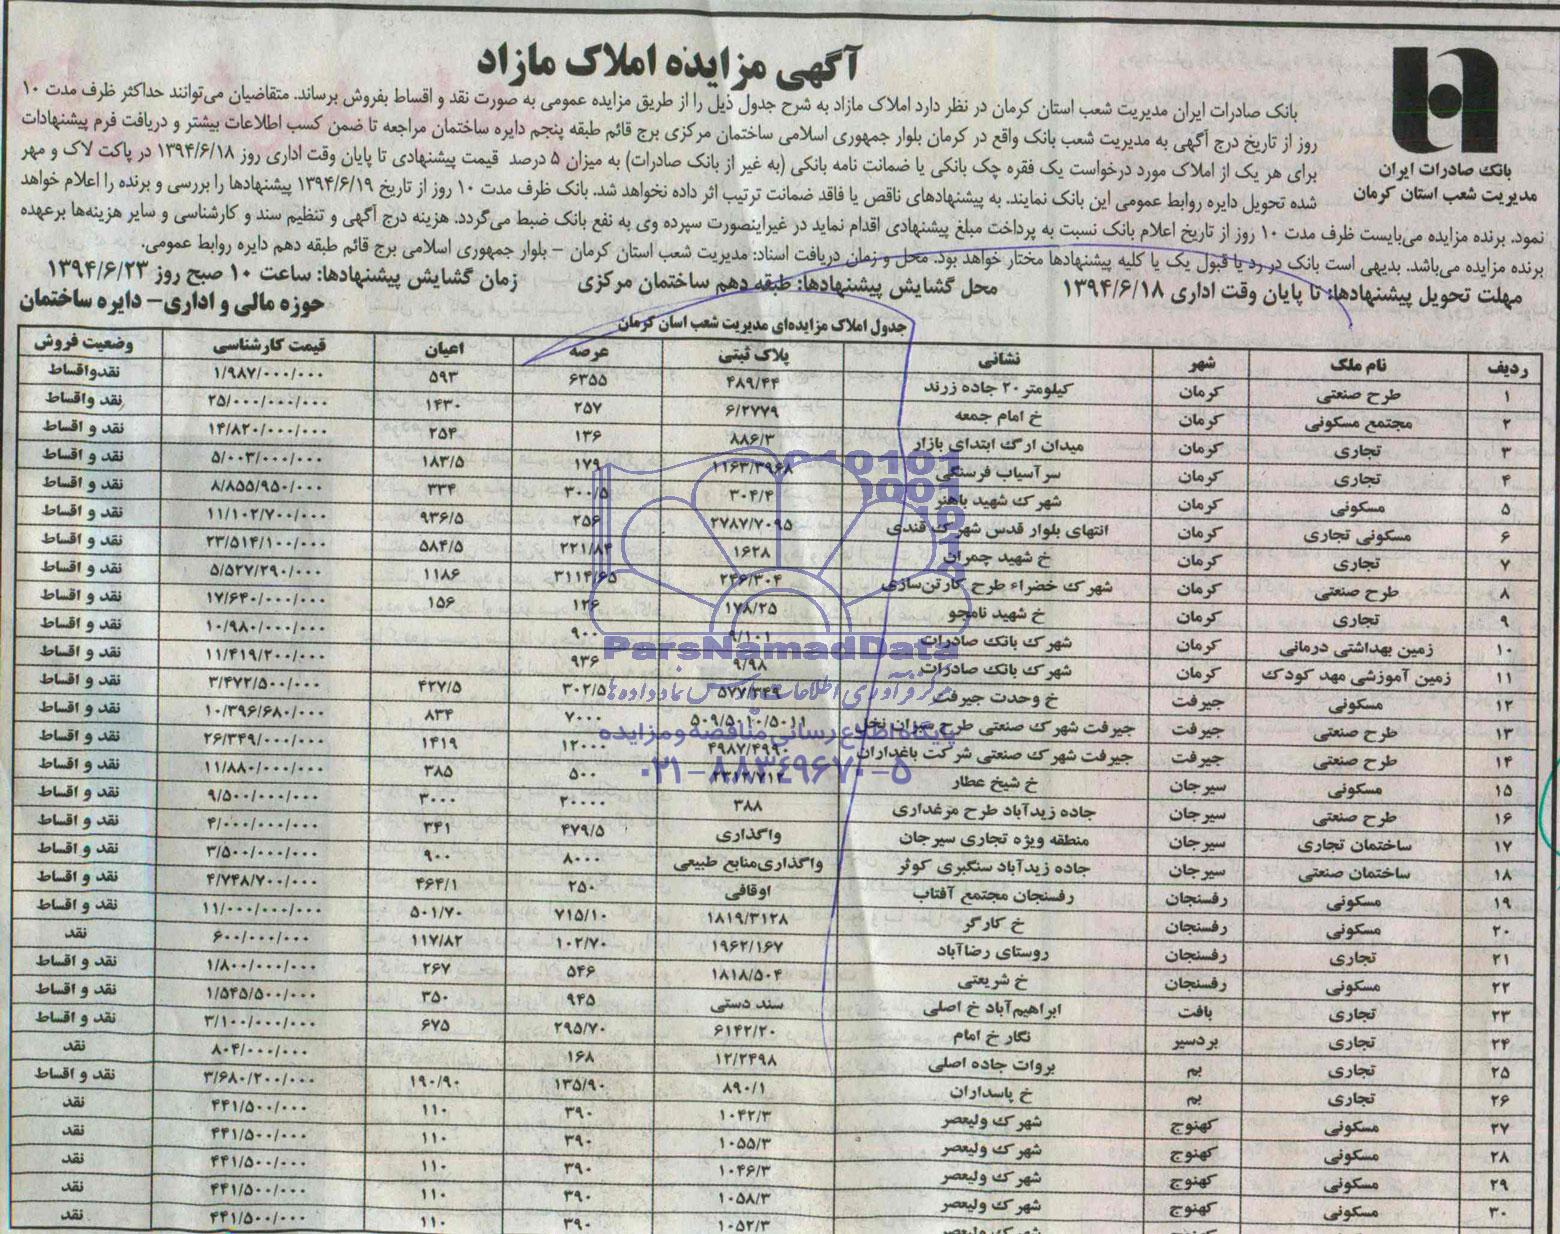 آگهی مزایده املاک مازاد
بانک صادرات ایران
مدیریت شعب استان کرمان
بانک صادرات ایران مدیریت شعب استان کرمان در نظر دارد املاک مازاد به شرح جدول ذیل را از طریق مزایده عمومی به صورت نقد و اقساط بفروش برساند. متقاضیان می‌توانند حداکثر ظرف مدت ۱۰
روز از تاریخ درج آگهی به مدیریت شعب بانک واقع در کرمان بلوار جمهوری اسلامی ساختمان مرکزی برج قائم طبقه پنجم دایره ساختمان مراجعه تا ضمن کسب اطلاعات بیشتر و دریافت فرم پیشنهادات
برای هر یک از املاک مورد درخواست یک فقره چک بانکی یا ضمانت نامه بانکی (به غیر از بانک صادرات) به میزان ۵ درصد قیمت پیشنهادی تا پایان وقت اداری روز ۱۳۹۴/۶/۱۸ در پاکت لاک و مهر
شده تحویل دایره روابط عمومی این بانک نمایند. به پیشنهادهای ناقص یا فاقد ضمانت ترتیب اثر داده نخواهد شد. بانک ظرف مدت ۱۰ روز از تاریخ ۱۳۹۴/۶/۱۹ پیشنهادها را بررسی و برنده را اعلام خواهد
نمود. برنده مزایده می‌بایست ظرف مدت ۱۰ روز از تاریخ اعلام بانک نسبت به پرداخت مبلغ پیشنهادی اقدام نماید در غیراینصورت سپرده وی به نفع بانک ضبط می‌گردد. هزینه درج آگهی و تنظیم سند و کارشناسی و سایر هزینه‌ها برعهده
برنده مزایده می‌باشد. بدیهی است بانک در رد یا قبول یک یا کلیه پیشنهادها مختار خواهد بود. محل و زمان دریافت اسناد: مدیریت شعب استان کرمان – بلوار جمهوری اسلامی برج قائم طبقه دهم دایره روابط عمومی.
مهلت تحویل پیشنهادها: تا پایان وقت اداری ۱۳۹۴/۶/۱۸ محل گشایش پیشنهادها: طبقه دهم ساختمان مرکزی زمان گشایش پیشنهادها: ساعت ۱۰ صبح روز ۱۳۹۴/۶/۲۳
حوزه مالی و اداری– دایره ساختمان
جدول املاک مزایده‌ای مدیریت شعب اسان کرمان
ردیف نام ملک شهر نشانی پلاک ثبتی عرصه اعیان قیمت کارشناسی وضعیت فروش
۱ طرح صنعتی کرمان کیلومتر ۲۰ جاده زرند ۴۸۹/۴۴ ۶۳۵۵ ۵۹۳ ۱/۹۸۷/۰۰۰/۰۰۰ نقدواقساط
۲ مجتمع مسکونی کرمان خ امام جمعه ۶/۲۷۷۹ ۲۵۷ ۱۴۳۰ ۲۵/۰۰۰/۰۰۰/۰۰۰ نقد واقساط
۳ تجاری کرمان میدان ارگ ابتدای بازار ۸۸۶/۳ ۱۳۶ ۲۵۴ ۱۴/۸۲۰/۰۰۰/۰۰۰ نقد و اقساط
۴ تجاری کرمان سرآسیاب فرسنگی ۱۱۶۳/۳۹۶۸ ۱۷۹ ۱۸۳/۵ ۵/۰۰۳/۰۰۰/۰۰۰ نقد و اقساط
۵ مسکونی کرمان شهرک شهید باهنر ۳۰۴/۴ ۳۰۰/۵ ۳۳۴ ۸/۸۵۵/۹۵۰/۰۰۰ نقد و اقساط
۶ مسکونی تجاری کرمان انتهای بلوار قدس شهرک قندی ۲۷۸۷/۷۰۹۵ ۲۵۶ ۹۳۶/۵ ۱۱/۱۰۲/۷۰۰/۰۰۰ نقد و اقساط
۷ تجاری کرمان خ شهید چمران ۱۶۲۸ ۲۲۱/۸۴ ۵۸۴/۵ ۲۳/۵۱۴/۱۰۰/۰۰۰ نقد و اقساط
۸ طرح صنعتی کرمان شهرک خضراء طرح کارتن‌سازی ۲۴۶/۳۰۴ ۳۱۱۴/۶۵ ۱۱۸۶ ۵/۵۲۷/۲۹۰/۰۰۰ نقد و اقساط
۹ تجاری کرمان خ شهید نامجو ۱۷۸/۲۵ ۱۲۶ ۱۵۶ ۱۷/۶۴۰/۰۰۰/۰۰۰ نقد و اقساط
۱۰ زمین بهداشتی درمانی کرمان شهرک بانک صادرات ۹/۱۰۱ ۹۰۰ ۱۰/۹۸۰/۰۰۰/۰۰۰ نقد و اقساط
۱۱ زمین آموزشی مهد کودک کرمان شهرک بانک صادرات ۹/۹۸ ۹۳۶ ۱۱/۴۱۹/۲۰۰/۰۰۰ نقد و اقساط
۱۲ مسکونی جیرفت خ وحدت جیرفت ۵۷۷/۳۴۹ ۳۰۲/۵ ۴۲۷/۵ ۳/۴۷۲/۵۰۰/۰۰۰ نقد و اقساط
۱۳ طرح صنعتی جیرفت جیرفت شهرک صنعتی طرح سبزان نخل ۵۰۹/۵۰۱۰/۵۰۱۱ ۷۰۰۰ ۸۳۴ ۱۰/۳۹۶/۶۸۰/۰۰۰ نقد و اقساط
۱۴ طرح صنعتی جیرفت جیرفت شهرک صنعتی شرکت باغداران ۴۹۸۷/۴۹۹۰ ۱۲۰۰۰ ۱۴۱۹ ۲۶/۳۴۹/۰۰۰/۰۰۰ نقد و اقساط
۱۵ مسکونی سیرجان خ شیخ عطار ۵۰۰ ۳۸۵ ۱۱/۸۸۰/۰۰۰/۰۰۰ نقد و اقساط
۱۶ طرح صنعتی سیرجان جاده زیدآباد طرح مرغداری ۳۸۸ ۲۰۰۰۰ ۳۰۰۰ ۹/۵۰۰/۰۰۰/۰۰۰ نقد و اقساط
۱۷ ساختمان تجاری سیرجان منطقه ویژه تجاری سیرجان واگذاری ۴۷۹/۵ ۳۴۱ ۴/۰۰۰/۰۰۰/۰۰۰ نقد و اقساط
۱۸ ساختمان صنعتی سیرجان جاده زیدآباد سنگبری کوثر واگذاری‌منابع طبیعی ۸۰۰۰ ۹۰۰ ۳/۵۰۰/۰۰۰/۰۰۰ نقد و اقساط
۱۹ مسکونی رفسنجان رفسنجان مجتمع آفتاب اوقافی ۲۵۰ ۴۶۴/۱ ۴/۷۴۸/۷۰۰/۰۰۰ نقد و اقساط
۲۰ مسکونی رفسنجان خ کارگر ۱۸۱۹/۳۱۲۸ ۷۱۵/۱۰ ۵۰۱/۷۰ ۱۱/۰۰۰/۰۰۰/۰۰۰ نقد و اقساط
۲۱ تجاری رفسنجان روستای رضاآباد ۱۹۶۲/۱۶۷ ۱۰۲/۷۰ ۱۱۷/۸۲ ۶۰۰/۰۰۰/۰۰۰ نقد
۲۲ مسکونی رفسنجان خ شریعتی ۱۸۱۸/۵۰۴ ۵۴۶ ۲۶۷ ۱/۸۰۰/۰۰۰/۰۰۰ نقد و اقساط
۲۳ تجاری بافت ابراهیم‌آباد خ اصلی سند دستی ۹۴۵ ۳۵۰ ۱/۵۴۵/۵۰۰/۰۰۰ نقد و اقساط
۲۴ تجاری بردسیر نگار خ امام ۶۱۴۲/۲۰ ۲۹۵/۷۰ ۶۷۵ ۳/۱۰۰/۰۰۰/۰۰۰ نقد و اقساط
۲۵ تجاری بم بروات جاده اصلی ۱۲/۲۴۹۸ ۱۶۸ ۸۰۴/۰۰۰/۰۰۰ نقد
۲۶ تجاری بم خ پاسداران ۸۹۰/۱ ۱۳۵/۹۰ ۱۹۰/۹۰ ۳/۶۸۰/۲۰۰/۰۰۰ نقد و اقساط
۲۷ مسکونی کهنوج شهرک ولیعصر ۱۰۴۲/۳ ۳۹۰ ۱۱۰ ۴۴۱/۵۰۰/۰۰۰ نقد
۲۸ مسکونی کهنوج شهرک ولیعصر ۱۰۵۵/۳ ۳۹۰ ۱۱۰ ۴۴۱/۵۰۰/۰۰۰ نقد
۲۹ مسکونی کهنوج شهرک ولیعصر ۱۰۴۶/۳ ۳۹۰ ۱۱۰ ۴۴۱/۵۰۰/۰۰۰ نقد
۳۰ مسکونی کهنوج شهرک ولیعصر ۱۰۵۸/۳ ۳۹۰ ۱۱۰ ۴۴۱/۵۰۰/۰۰۰ نقد
شهرک ولیعصر ۱۰۵۲/۳ ۳۹۰ ۱۱۰ ۴۴۱/۵۰۰/۰۰۰ نقد
ParsNamadData
پایگاه اطلاع رسانی مناقصه و مزایده
۰۲۱-۸۸۳۴۹۶۷۰-۵